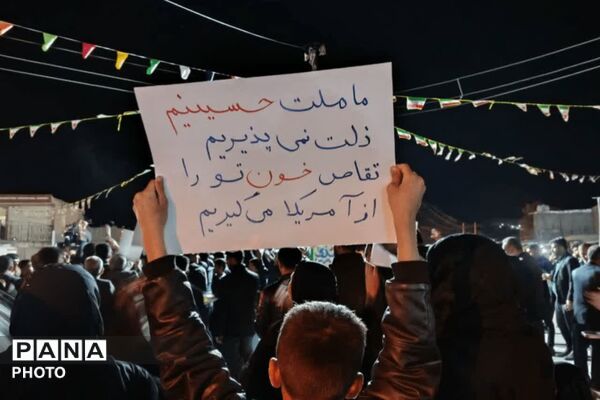 ما ملت حسینیم
ذلت نمی پذیریم
تقاص خون تو را
از آمریکا می گیریم
PANA
PHOTO